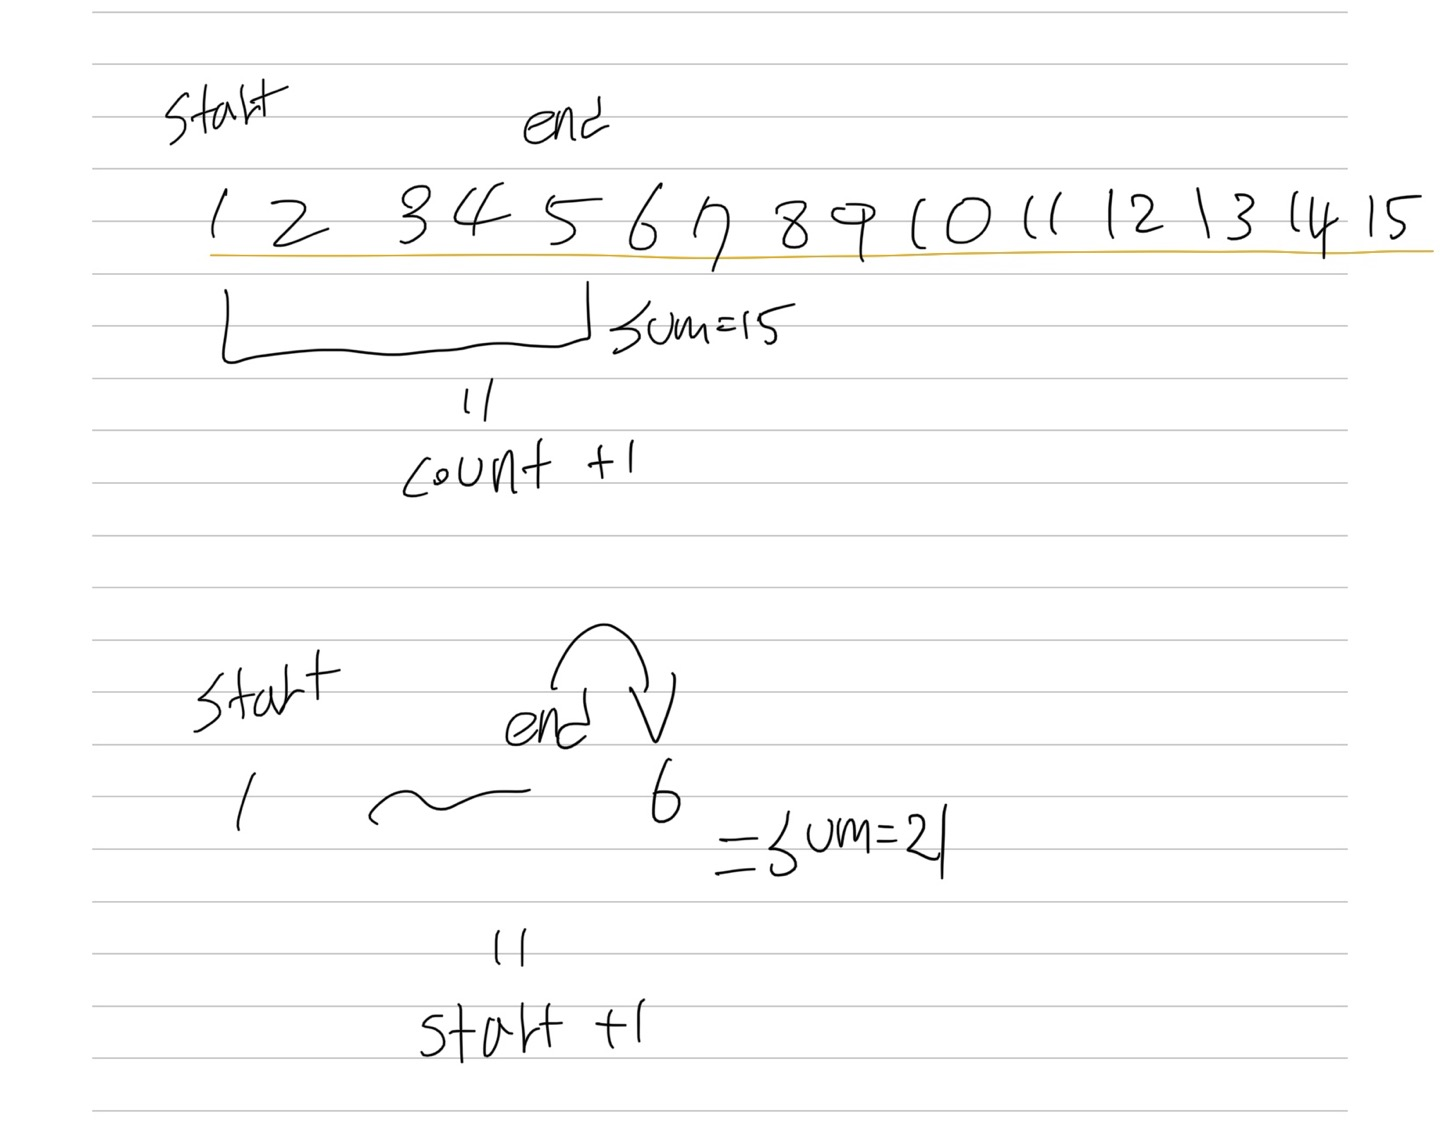 start end
1 2 3 4 5 6 7 8 9 10 11 12 13 14 15
sum=15
||
count +1
start
end
1 ~ 6
=sum=21
||
start +1